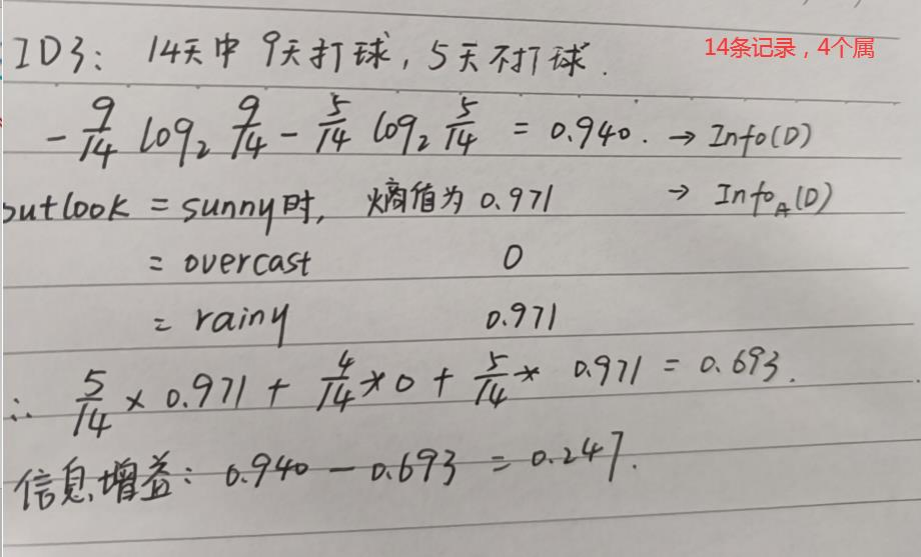 ID3: 14天中 9天打球, 5天不打球.
14条记录，4个属
- 9/14 log₂ 9/14 - 5/14 log₂ 5/14 = 0.940. → Info(D)
outlook = sunny时, 熵值为 0.971 → Info_A(D)
= overcast 0
= rainy 0.971
∴ 5/14 × 0.971 + 4/14 * 0 + 5/14 * 0.971 = 0.693.
信息增益: 0.940 - 0.693 = 0.247.